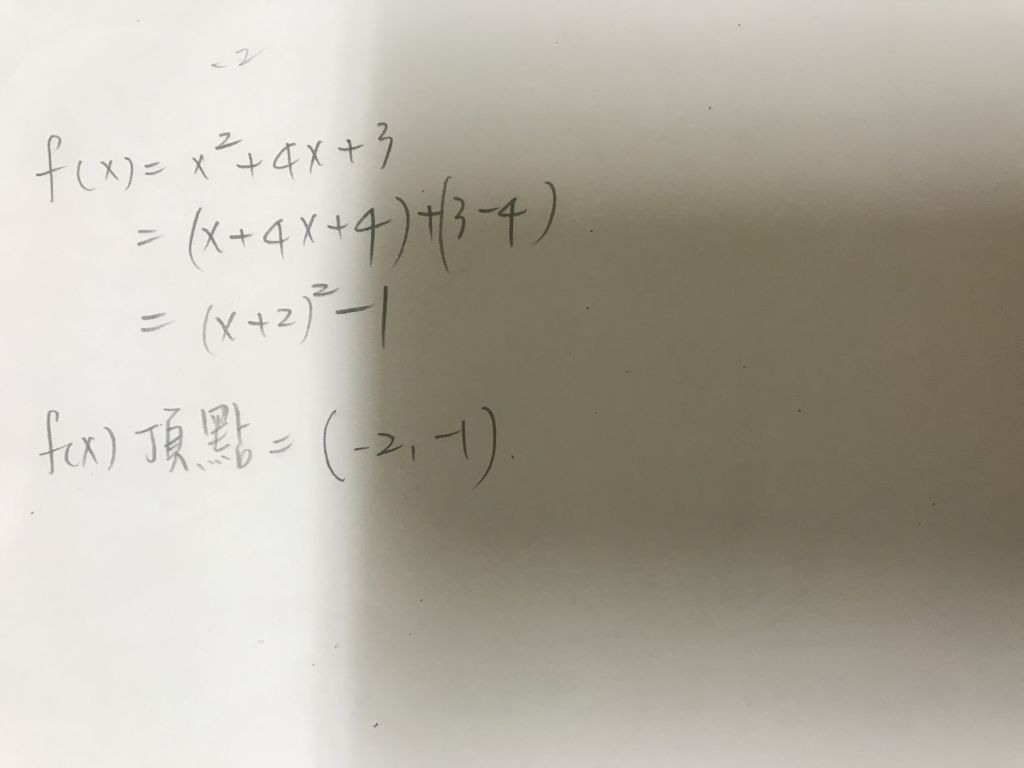 -2
f(x) = x² + 4x + 3
= (x + 4x + 4) + (3 - 4)
= (x + 2)² - 1
f(x) 頂點 = (-2, -1).